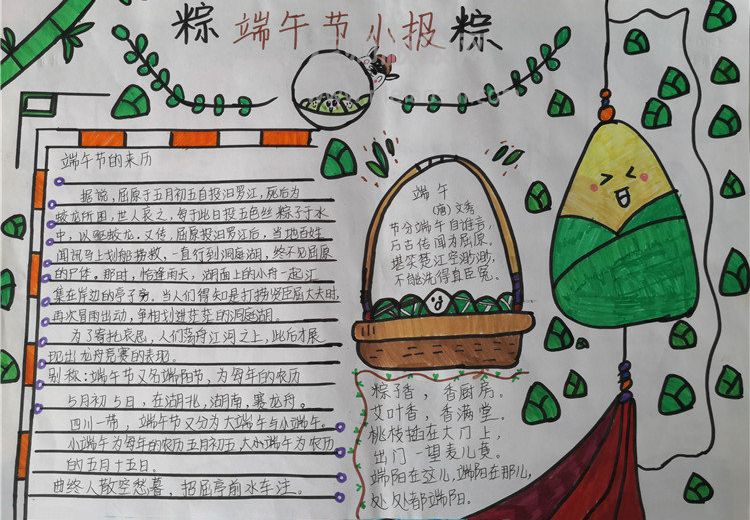 粽 端午节小报 粽
端午节的来历
据说，屈原于五月初五自投汨罗江，死后为
蛟龙所困，世人哀之，每于此日投五色丝粽子于水
中，以驱蛟龙。又传，屈原投汨罗江后，当地百姓
闻讯马上划船捞救，一直行到洞庭湖，终不见屈原
的尸体。那时，恰逢雨天，湖面上的小舟一起汇
集在岸边的亭子旁。当人们得知是打捞贤臣屈大夫时，
再次冒雨出动，争相划进茫茫的洞庭湖。
为了寄托哀思，人们荡舟江河之上，此后才展
现出龙舟竞赛的表现。
别称：端午节又名端阳节，为每年的农历
5月初5日，在湖北，湖南，赛龙舟。
四川一带，端午节又分为大端午与小端午。
小端午为每年的农历五月初五，大小端午为农历
的五月十五日。
曲终人散空愁暮，招屈亭前水车注。
端午
(唐)文秀
节分端午自谁言，
万古传闻为屈原。
堪笑楚江空渺渺，
不能洗得直臣冤。
粽子香，香厨房。
艾叶香，香满堂。
桃枝插在大门上，
出门一望麦儿黄。
端阳在这儿，端阳在那儿，
处处都端阳。